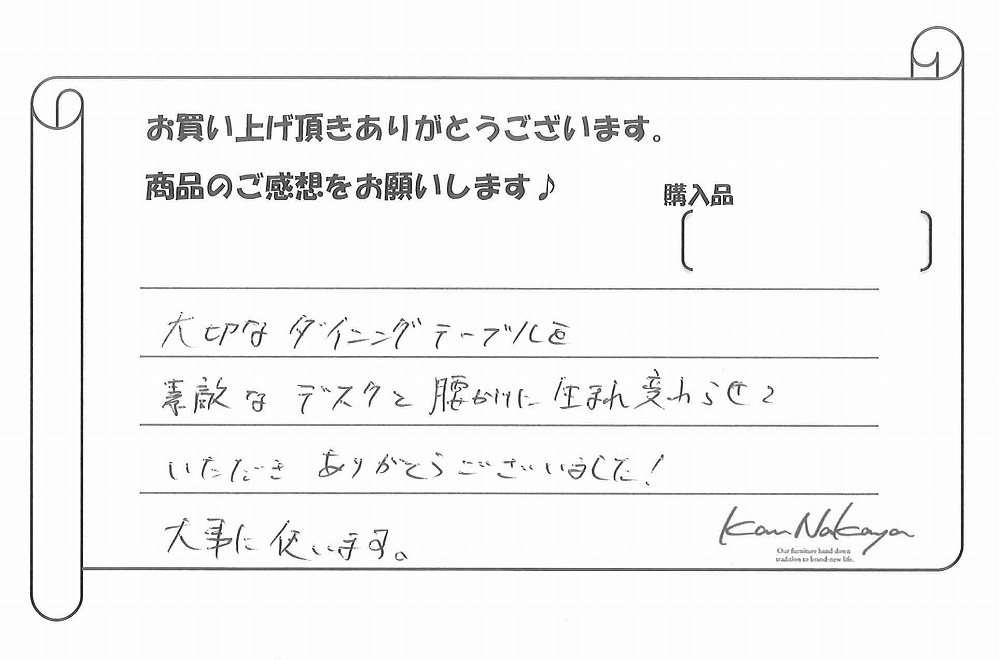 お買い上げ頂きありがとうございます。
商品のご感想をお願いします♪
購入品
大切なダイニングテーブルを
素敵なデスクと腰かけに生まれ変わらせて
いただきありがとうございました!
大事に使います。
Kan Nakaya
Our furniture hand down
tradition to brand-new life.